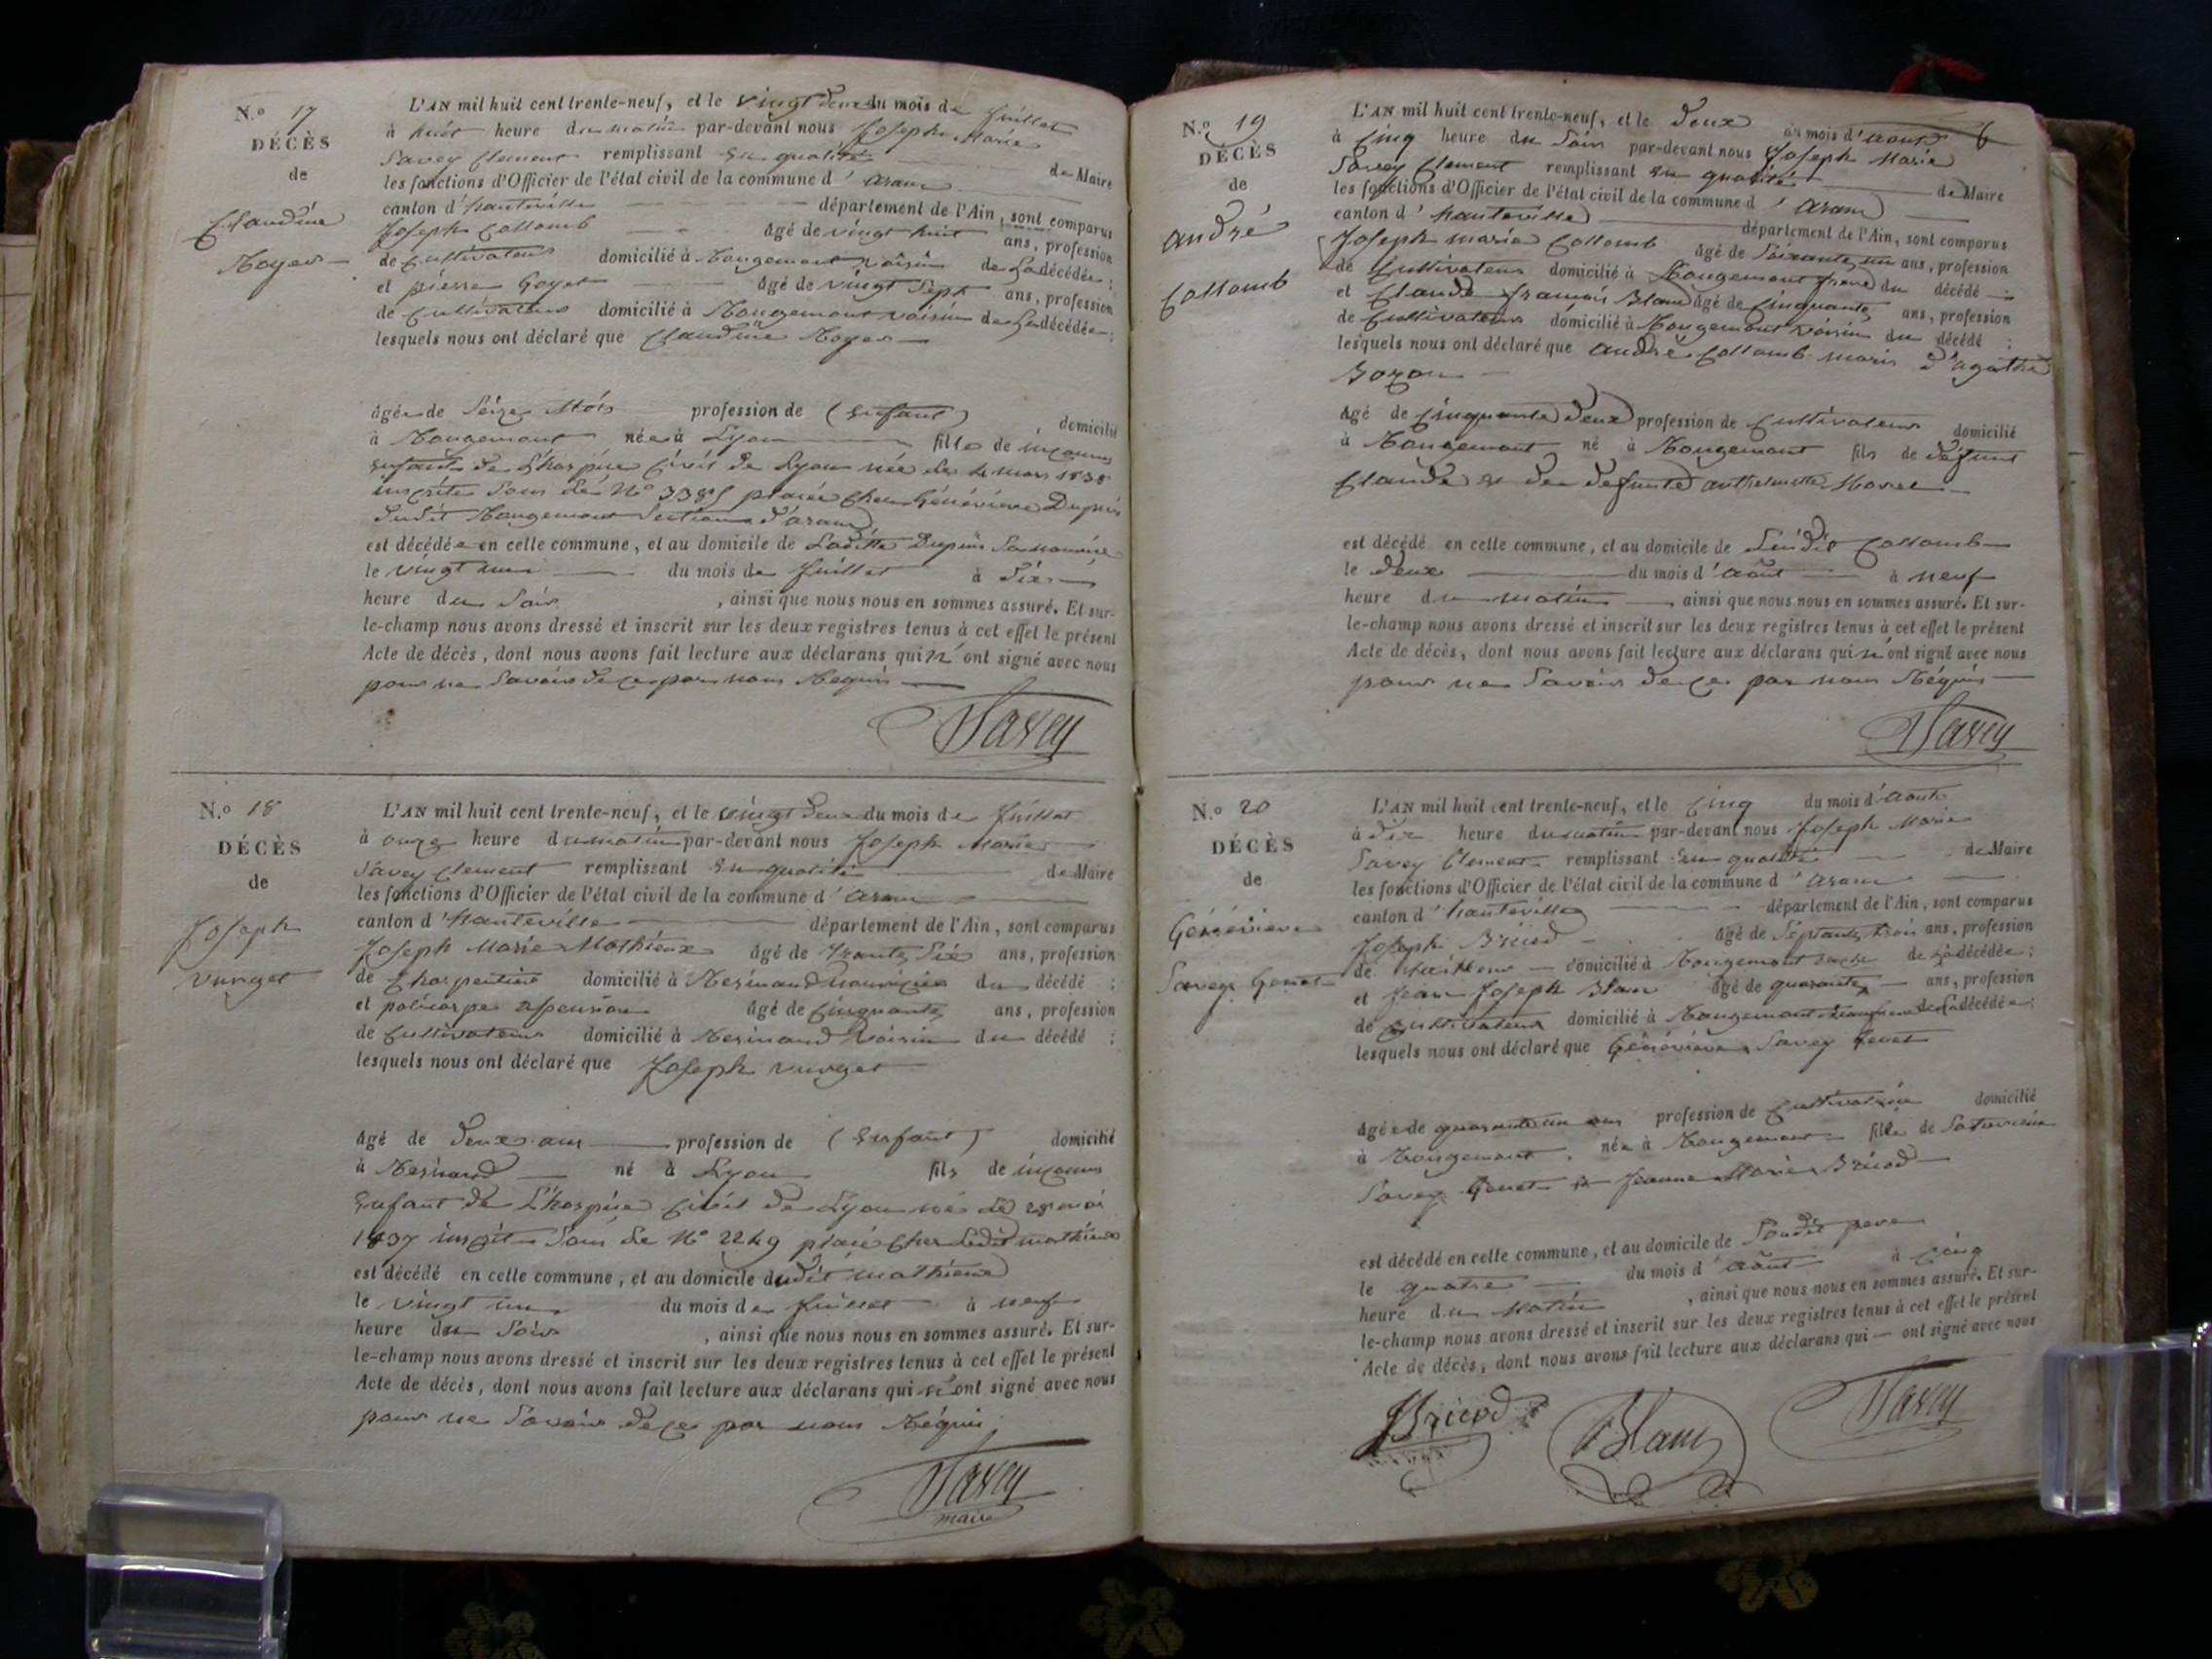 N.° 17
DÉCÈS
de
Claudine
Noyer
L'AN mil huit cent trente-neuf, et le vingt deux du mois de juillet
à huit heure du matin par-devant nous Joseph Marie
Savey Clement remplissant en qualité de Maire
les fonctions d'Officier de l'état civil de la commune d' aranc
canton d' hauteville département de l'Ain, sont comparus
Joseph Collomb âgé de vingt huit ans, profession
de Cultivateur domicilié à Rougemont voisin de la décédée ;
et pierre Goyet âgé de vingt Sept ans, profession
de Cultivateur domicilié à Rougemont voisin de la décédée ;
lesquels nous ont déclaré que Claudine Noyer
âgée de Seize Mois profession de (Enfant) , domicilié
à Rougemont née à Lyon fille de inconnus
Enfant de L'hospice Civil de Lyon née le 4 mars 1838
inscrite Sous le N° 3385 placée chez Généviève Dupuis
dudit Rougemont Section d'aranc
est décédée en celle commune, et au domicile de Ladite Dupuis Sa nourrice
le vingt un du mois de Juillet à Six
heure du Soir , ainsi que nous nous en sommes assuré. Et sur-
le-champ nous avons dressé et inscrit sur les deux registres tenus à cet effet le présent
Acte de décès, dont nous avons fait lecture aux déclarans qui n' ont signé avec nous
pour ne Savoir de ce par nous Réquis
Savey
N.° 18
DÉCÈS
de
Joseph
vurget
L'AN mil huit cent trente-neuf, et le vingt deux du mois de Juillet
à onze heure du matin par-devant nous Joseph Marie
Savey Clement remplissant En qualité de Maire
les fonctions d'Officier de l'état civil de la commune d' aranc
canton d' hauteville département de l'Ain, sont comparus
Joseph Marie Mathieux âgé de Trante Six ans, profession
de Charpentier domicilié à Resinand nourricier du décédé ;
et policarpe apension âgé de Cinquante ans, profession
de Cultivateur domicilié à Resinand Voisin du décédé ;
lesquels nous ont déclaré que Joseph vurget
âgé de deux ans profession de (Enfant) domicilié
à Resinand né à Lyon fils de inconnus
Enfant de L'hospice Civil de Lyon né le 28 mai
1837 inscrit Sous le N° 2249 placé chez Ledit mathieux
est décédé en celle commune, et au domicile dudit Mathieux
le vingt un du mois de Juillet à neuf
heure du Soir , ainsi que nous nous en sommes assuré. Et sur-
le-champ nous avons dressé et inscrit sur les deux registres tenus à cet effet le présent
Acte de décès, dont nous avons fait lecture aux déclarans qui n'ont signé avec nous
pour ne Savoir de ce par nous Réquis
Savey
maire
6
N.° 19
DÉCÈS
de
andré
Collomb
L'AN mil huit cent trente-neuf, et le deux du mois d' aout
à Cinq heure du Soir par-devant nous Joseph Marie
Savey Clement remplissant En qualité de Maire
les fonctions d'Officier de l'état civil de la commune d' aranc
canton d' hauteville département de l'Ain, sont comparus
Joseph marie Collomb âgé de Soixante un ans, profession
de Cultivateur domicilié à Rougemont frere du décédé ;
et Claude françois Blanc âgé de Cinquante ans, profession
de Cultivateur domicilié à Rougemont voisin du décédé ;
lesquels nous ont déclaré que andré Collomb maris d'agathe
Bozon
âgé de Cinquante deux profession de Cultivateur domicilié
à Rougemont né à Rougemont fils de défunt
Claude et de defunte anthelmette Morel
est décédé en celle commune, et au domicile de Ludit Collomb
le deux du mois d' août à neuf
heure du matin ainsi que nous nous en sommes assuré. Et sur-
le-champ nous avons dressé et inscrit sur les deux registres tenus à cet effet le présent
Acte de décès, dont nous avons fait lecture aux déclarans qui n'ont signé avec nous
pour ne Savoir de ce par nous Réquis
Savey
N.° 20
DÉCÈS
de
Généviève
Savey Genet
L'AN mil huit cent trente-neuf, et le Cinq du mois d' août
à dix heure du matin par-devant nous Joseph Marie
Savey Clement remplissant En qualité de Maire
les fonctions d'Officier de l'état civil de la commune d' aranc
canton d' hauteville département de l'Ain, sont comparus
Joseph Bricod âgé de Septante trois ans, profession
de tailleur domicilié à Rougemont oncle de la décédée ;
et Jean Joseph Blanc âgé de quarante ans, profession
de Cultivateur domicilié à Rougemont de la décédée ;
lesquels nous ont déclaré que Généviève Savey Genet
âgée de quarante un ans profession de Cultivatrice domicilié
à Rougemont née à Rougemont fille de
Savey Genet et Jeanne Marie Bricod
est décédé en celle commune, et au domicile de Sondit pere
le quatre du mois d' août à Cinq
heure du Matin , ainsi que nous nous en sommes assuré. Et sur-
le-champ nous avons dressé et inscrit sur les deux registres tenus à cet effet le présent
Acte de décès, dont nous avons fait lecture aux déclarans qui — ont signé avec nous
JBricod Blanc Savey